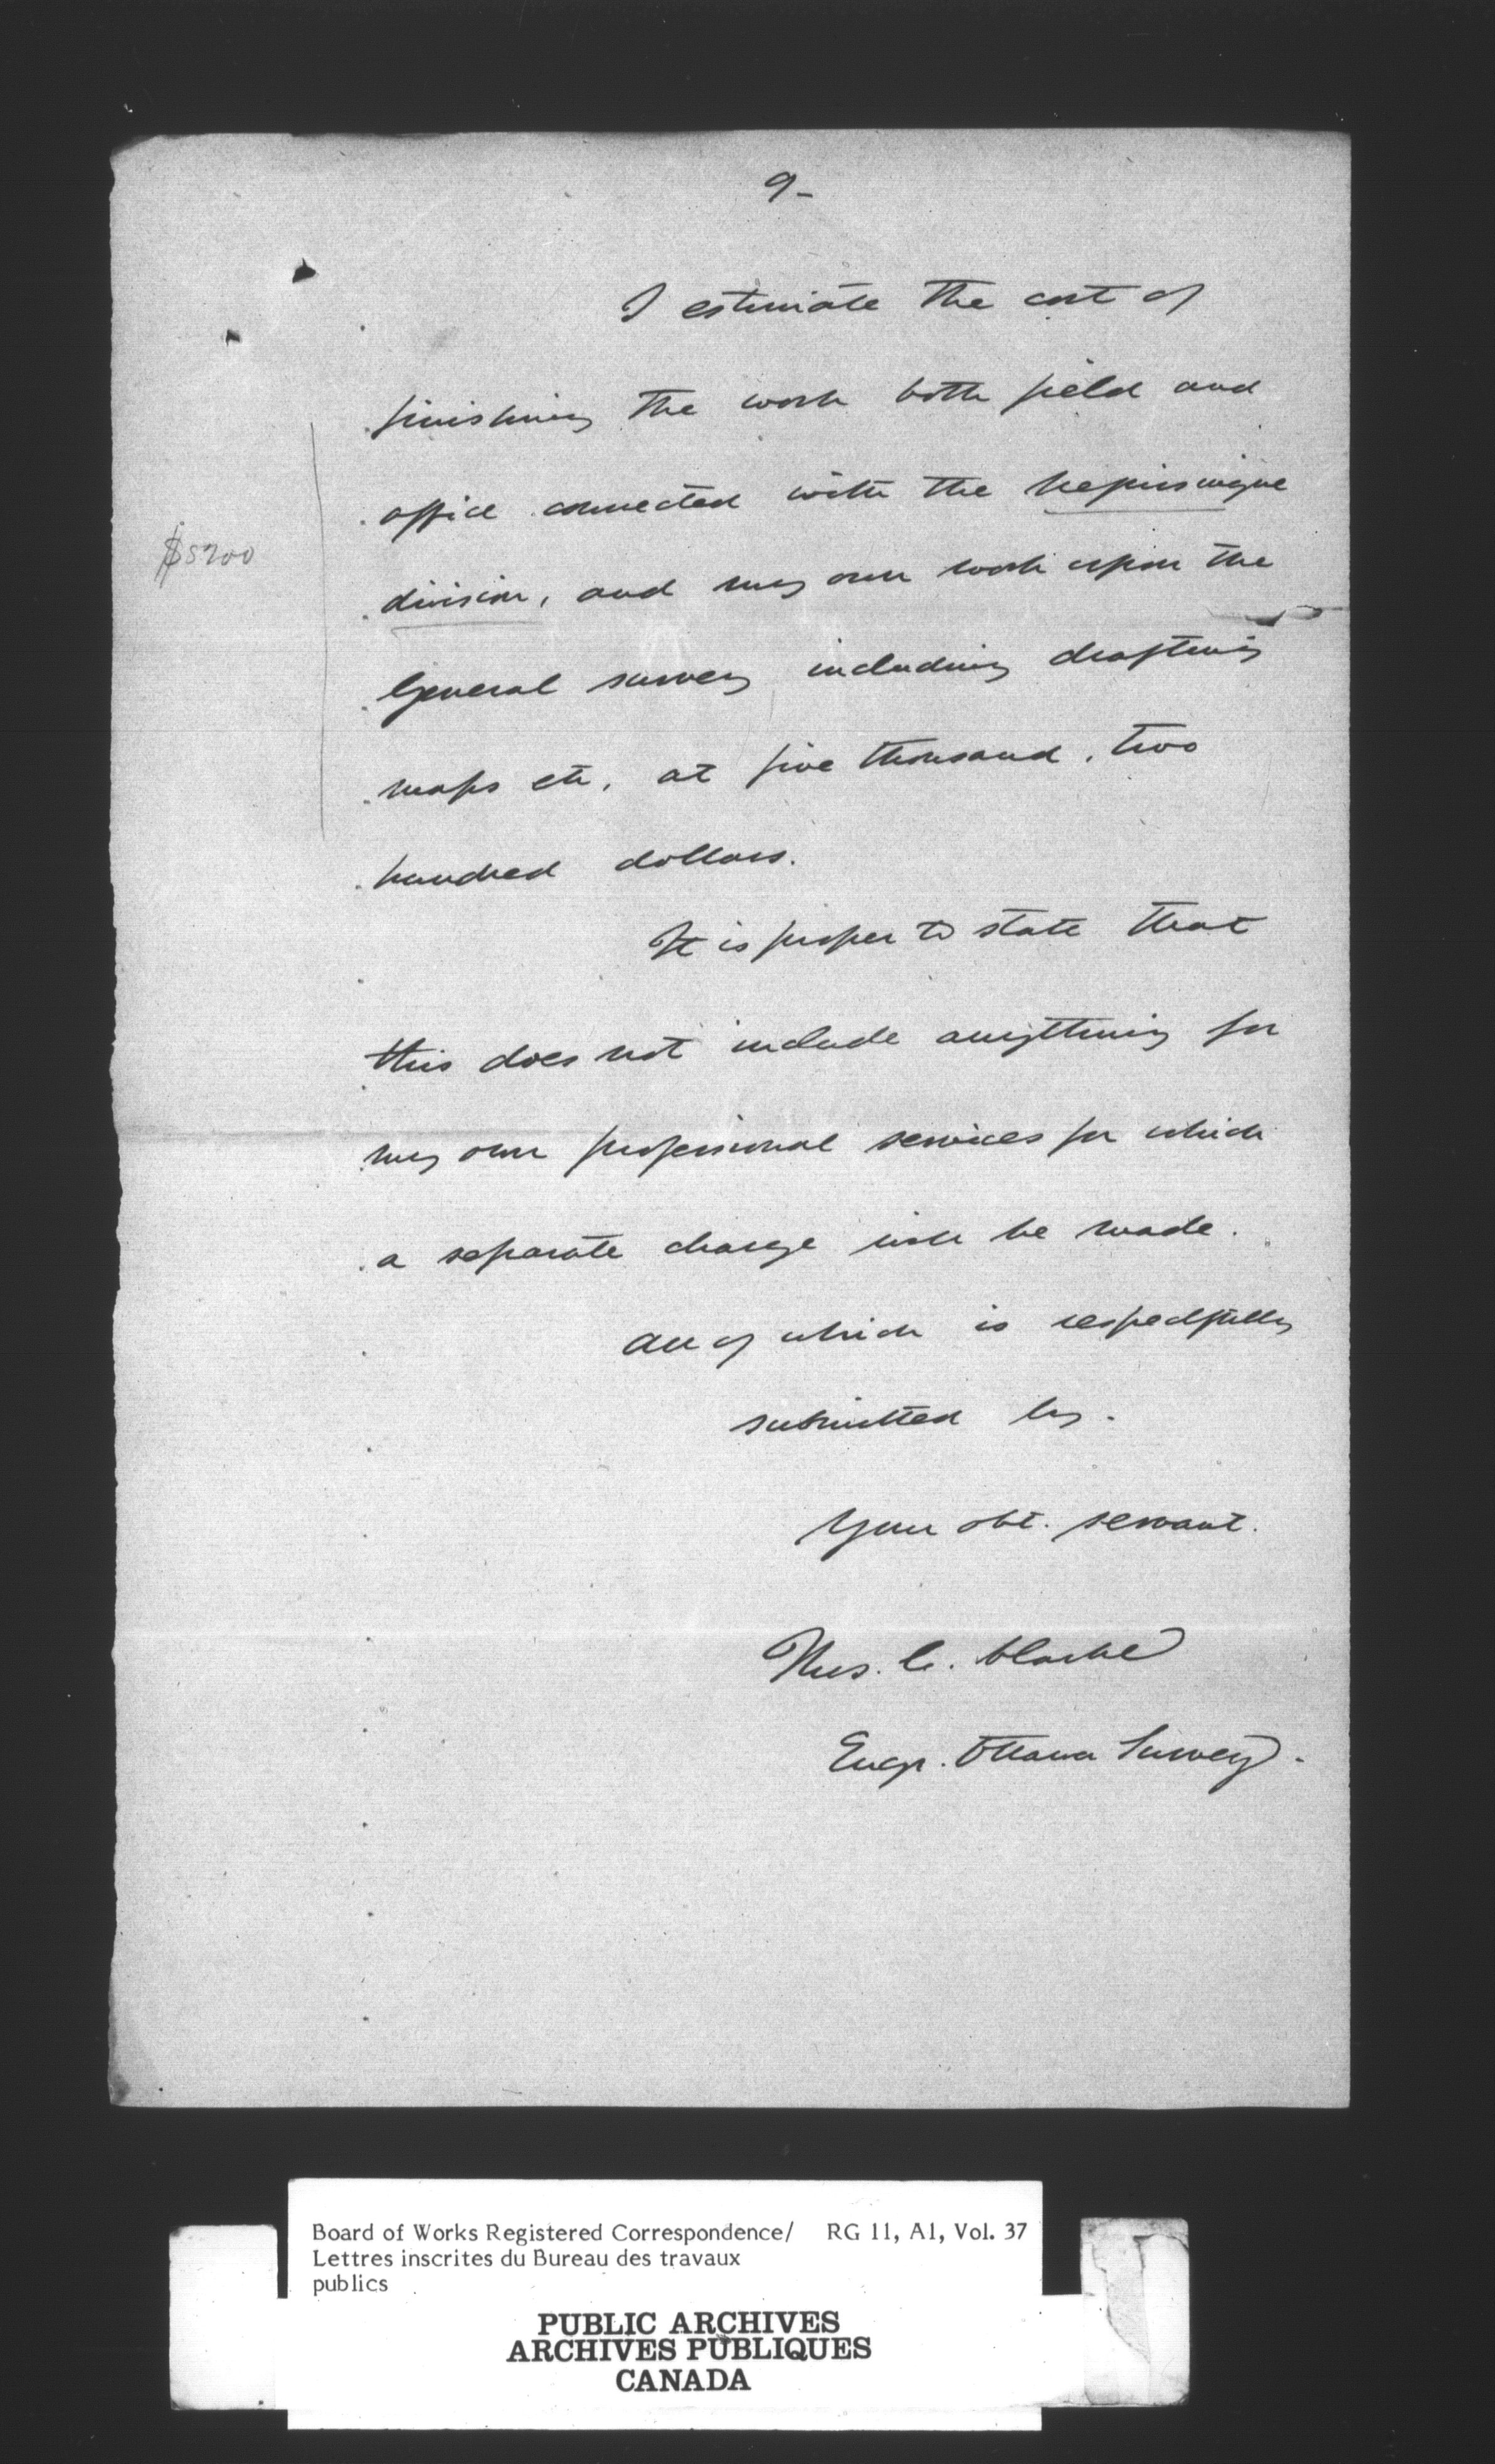 9-
I estimate the cost of
finishing the work both field and
office connected with the Nepissingue
$5200
division, and my own work upon the
General survey including drafting
maps etc, at five thousand, two
hundred dollars.
It is proper to state that
this does not include anything for
my own professional services for which
a separate charge will be made.
All of which is respectfully
submitted by.
Your obt. servant.
Thos. C. Clarke
Engr. Ottawa Survey.
Board of Works Registered Correspondence/ RG 11, A1, Vol. 37
Lettres inscrites du Bureau des travaux
publics
PUBLIC ARCHIVES
ARCHIVES PUBLIQUES
CANADA